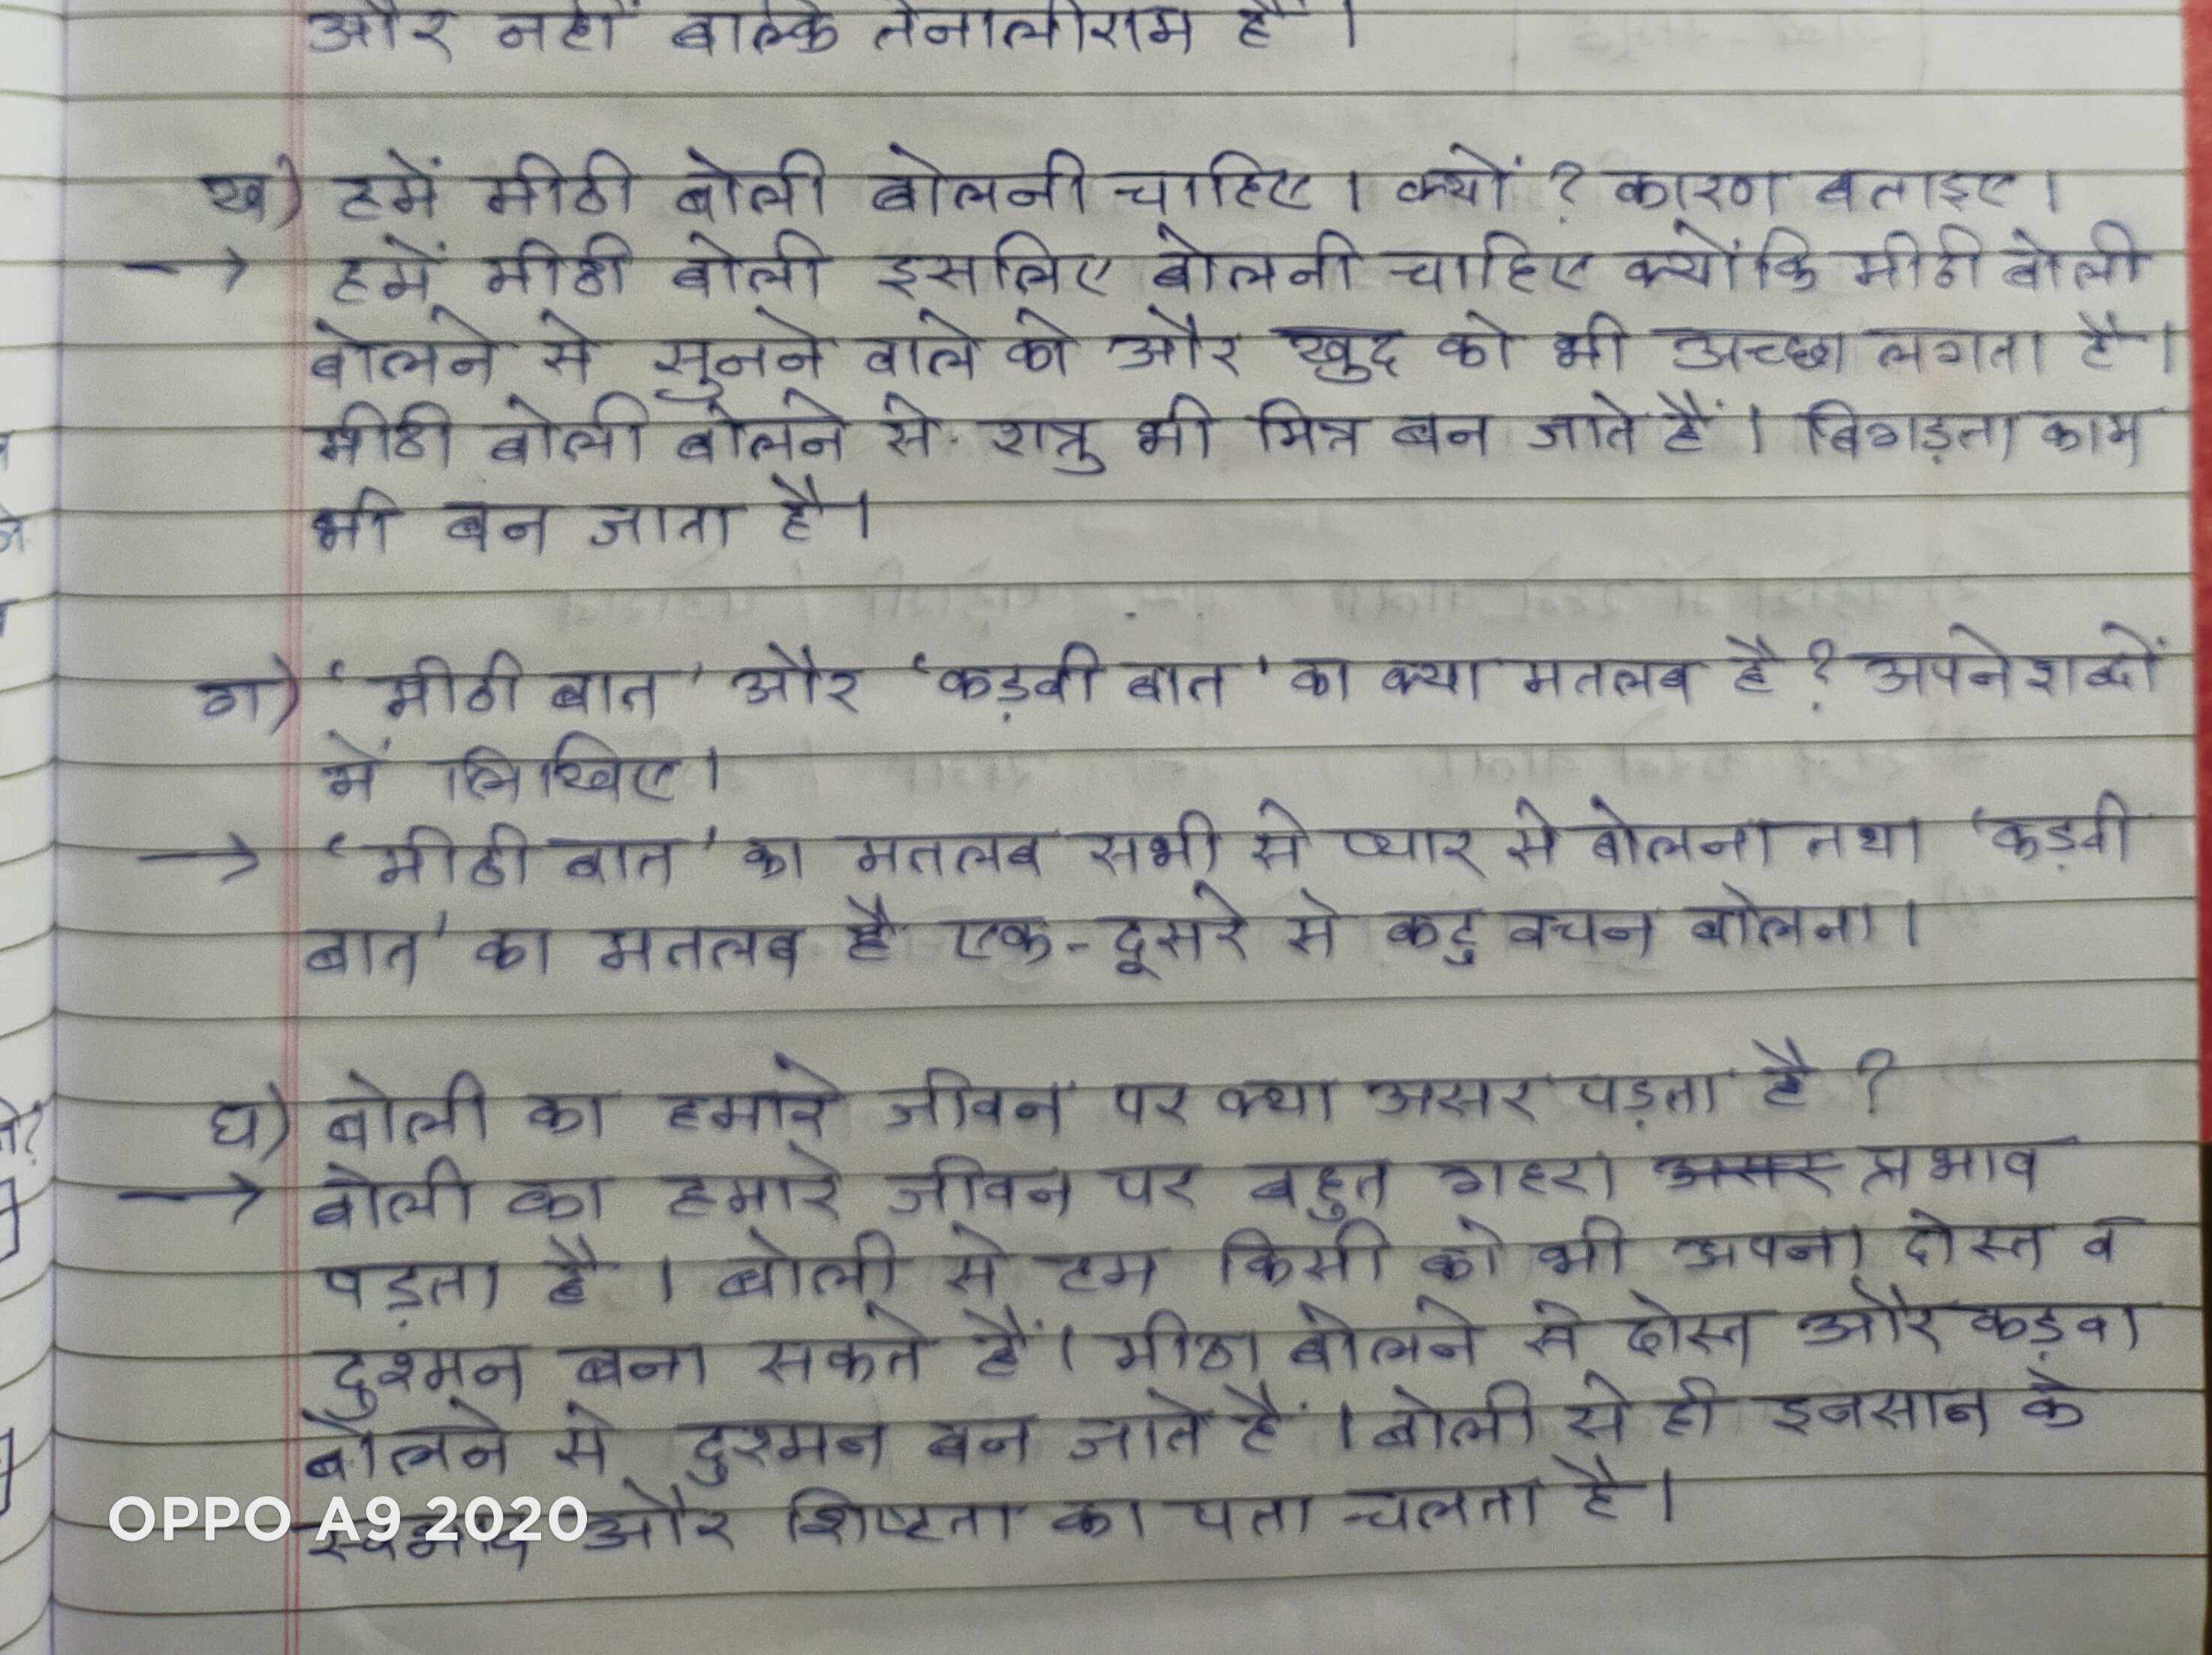 और नहीं बल्कि तेनालीराम हैं ।
ख) हमें मीठी बोली बोलनी चाहिए । क्यों ? कारण बताइए ।
→ हमें मीठी बोली इसलिए बोलनी चाहिए क्योंकि मीठी बोली
बोलने से सुनने वाले को और खुद को भी अच्छा लगता है ।
मीठी बोली बोलने से शत्रु भी मित्र बन जाते हैं । बिगड़ता काम
भी बन जाता है ।
ग) ‘मीठी बात’ और ‘कड़वी बात’ का क्या मतलब है ? अपने शब्दों
में लिखिए ।
→ ‘मीठी बात’ का मतलब सभी से प्यार से बोलना तथा ‘कड़वी
बात’ का मतलब है एक-दूसरे से कटु वचन बोलना ।
घ) बोली का हमारे जीवन पर क्या असर पड़ता है ?
→ बोली का हमारे जीवन पर बहुत गहरा असर प्रभाव
पड़ता है । बोली से हम किसी को भी अपना दोस्त व
दुश्मन बना सकते हैं । मीठा बोलने से दोस्त और कड़वा
बोलने से दुश्मन बन जाते हैं । बोली से ही इनसान के
स्वभाव और शिष्टता का पता चलता है ।
OPPO A9 2020